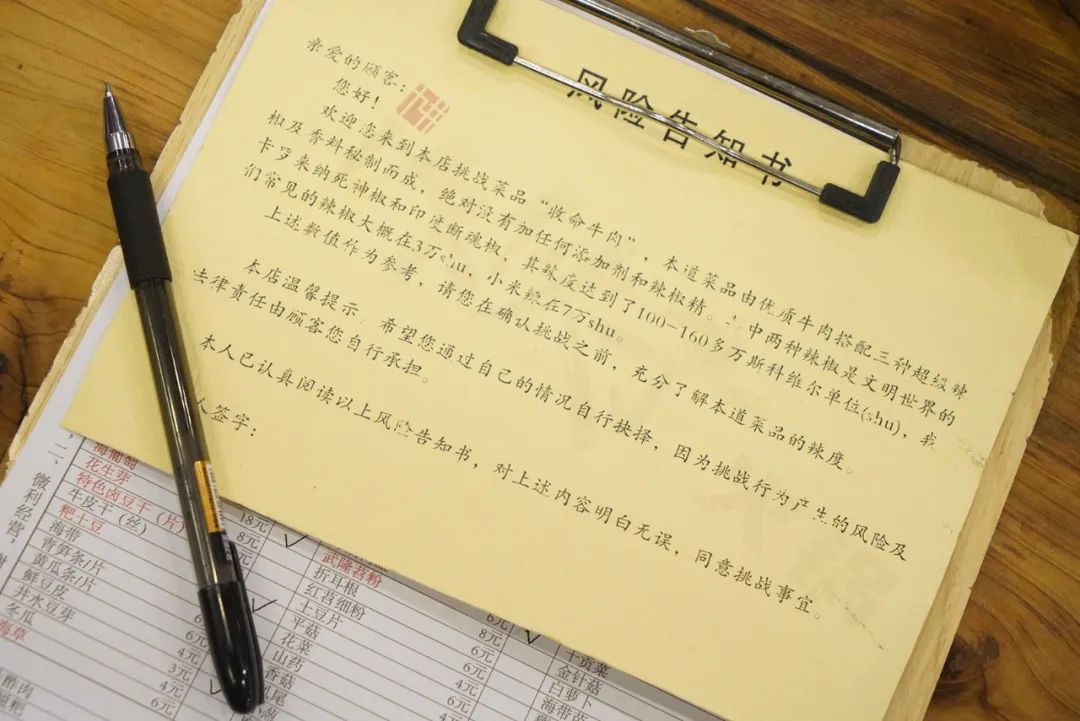 风险告知书
亲爱的顾客：
您好！
欢迎您来到本店挑战菜品“收命牛肉”，本道菜品由优质牛肉搭配三种超级辣
椒及香料秘制而成，绝对没有加任何添加剂和辣椒精。其中两种辣椒是文明世界的
卡罗来纳死神椒和印度断魂椒，其辣度达到了100-160多万斯科维尔单位(shu)，我
们常见的辣椒大概在3万shu，小米辣在7万shu。
上述数值作为参考，请您在确认挑战之前，充分了解本道菜品的辣度。
本店温馨提示：希望您通过自己的情况自行抉择，因为挑战行为产生的风险及
法律责任由顾客您自行承担。
本人已认真阅读以上风险告知书，对上述内容明白无误，同意挑战事宜。
人签字：
二、微利经营
海葡萄
花生芽
特色卤豆干（片）
牛皮干（丝） 18元
粑土豆 8元
海带
青笋条/片
黄瓜条/片
鲜豆皮
井水豆芽 6元
冬瓜 6元
海草 4元
3元
4元
6元
武隆苕粉
折耳根
红苕细粉 6元
土豆片 8元
平菇 6元
花菜 4元
山药 6元
香菇 4元
干贡菜
金针菇
白萝卜
海带苗
酥肉